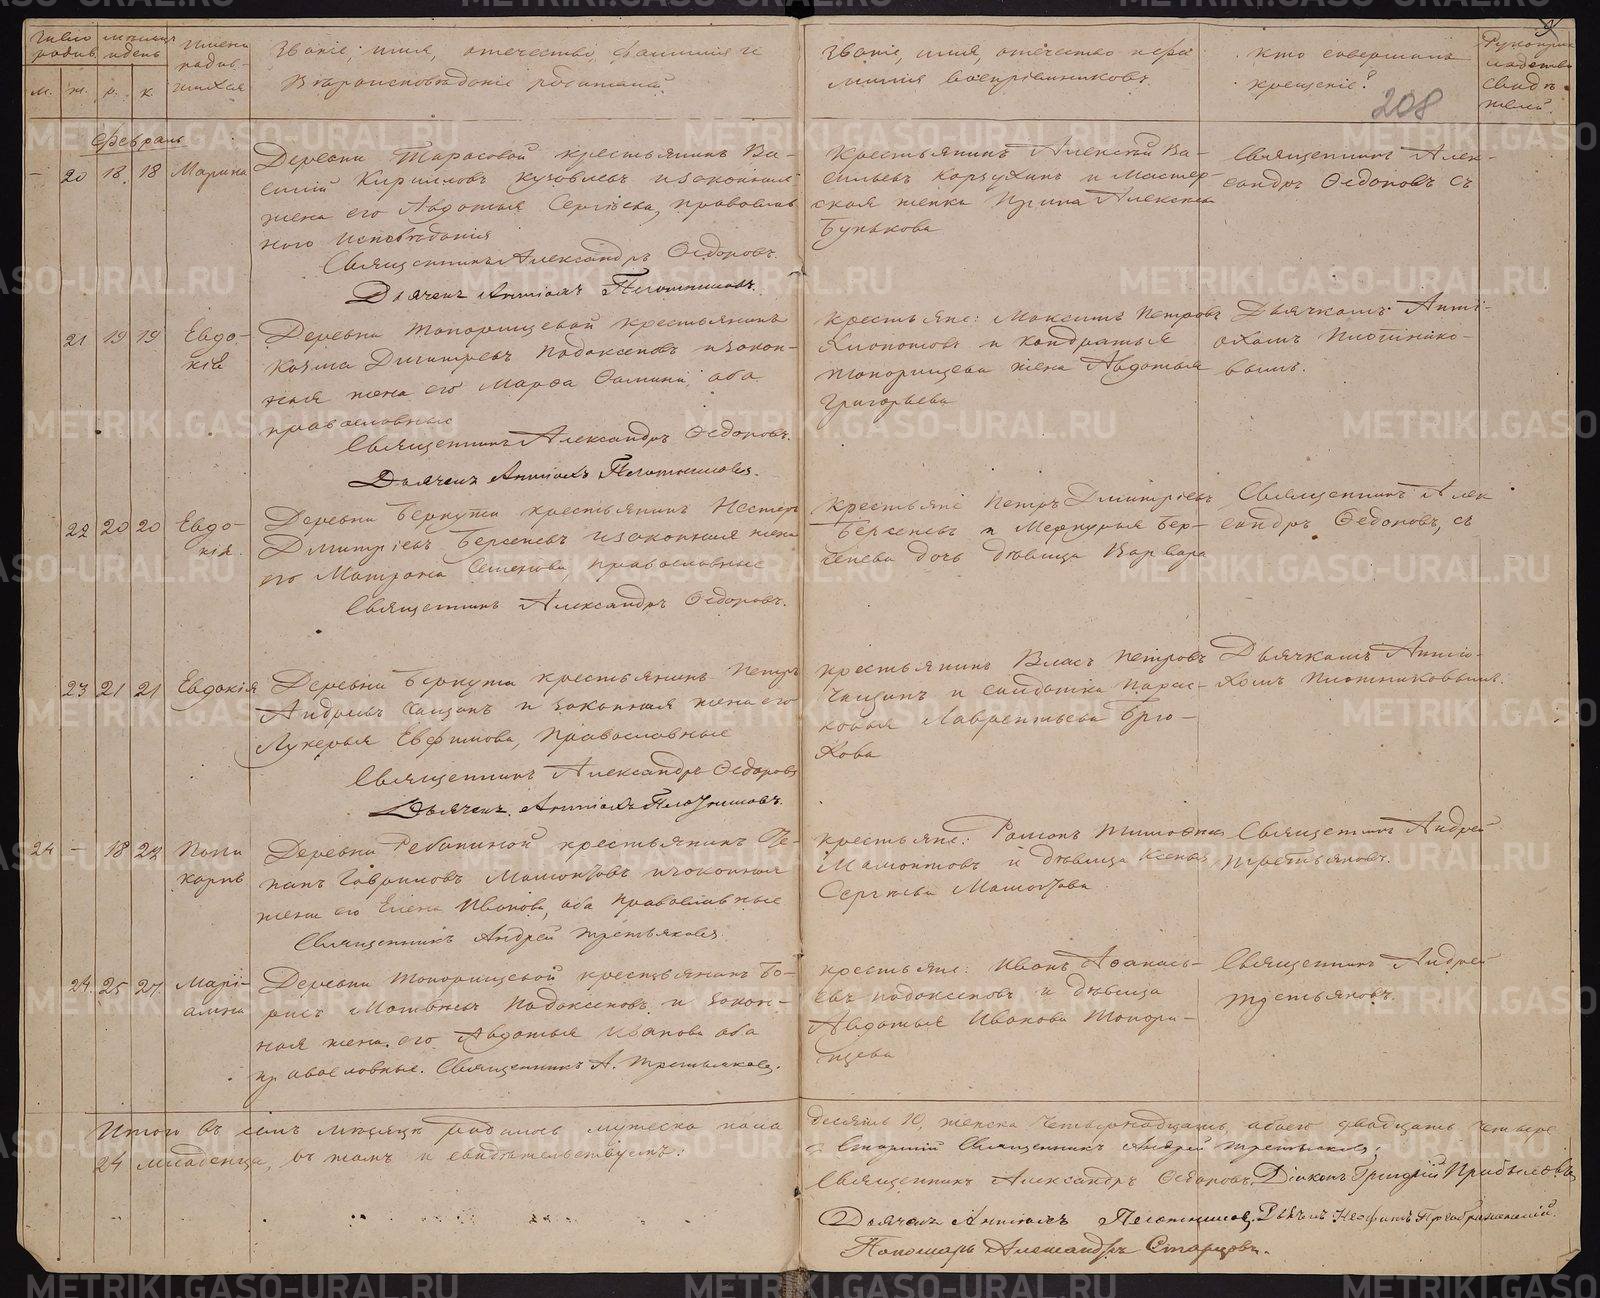 Число родив.
мѣсяцъ и день
Имена родив-
шихся
Званіе, имя, отечество, фамилія и
Вѣроисповѣданіе родителей.
м. ж. р. к.
Званіе, имя, отечество и фа-
милія воспріемниковъ.
Кто совершалъ
крещеніе?
Рукоприк
ладство
Свидѣ
телей.
208
Февраль
– 20 18 18 Марина
Деревни Тарасовой крестьянинъ Ва-
силій Кирилловъ и законная
жена его Авдотья Сергіева, православ
наго исповѣданія
Священникъ Александръ Ѳедоровъ.
Дьячекъ Антіохъ Плотниковъ.
Крестьянинъ Алексѣй Ва-
сильевъ и Мастер-
ская женка Ирина Алексѣева
Бунькова
Священникъ Алек-
сандръ Ѳедоровъ съ
21 19 19 Евдо-
кія
Деревни Топорищевой крестьянинъ
Козма Димитріевъ Подоксеновъ и закон-
ная жена его Марѳа Ѳомина, оба
православные
Священникъ Александръ Ѳедоровъ.
Дьячекъ Антіохъ Плотниковъ.
Крестьяне: Максимъ Петровъ
и Кондратья
Топорищева жена Авдотья
Григорьева
Дьячкомъ Анті-
охомъ Плотнико-
вымъ.
22 20 20 Евдо-
кія.
Деревни Беркута крестьянинъ Нестеръ
Димитріевъ Берсеневъ и законная жена
его Матрона Семенова, православные
Священникъ Александръ Ѳедоровъ.
Крестьяне Петръ Димитріевъ
Берсеневъ и Меркурья Бер-
сенева дочь дѣвица Варвара
Священникъ Алек
сандръ Ѳедоровъ, съ
23 21 21 Евдокія
Деревни Беркута крестьянинъ Петръ
Андреевъ и законная жена его
Лукерья Евфимова, православные
Священникъ Александръ Ѳедоровъ
Дьячекъ Антіохъ Плотниковъ.
Крестьянинъ Власъ Петровъ
и солдатка Парас-
ковья Лаврентьева Брю-
хова
Дьячкомъ Антіо-
хомъ Плотниковымъ.
24 – 18 22 Поли
карпъ
Деревни Ребаниной крестьянинъ Сте-
панъ Гавриловъ Мамонтовъ и законная
жена его Елена Иванова, оба православные
Священникъ Андрей Третьяковъ.
Крестьяне: Романъ Тимоѳеев
Мамонтовъ и дѣвица Ксенья
Сергѣева Мамонтова
Священникъ Андрей
Третьяковъ.
24. 25 27. Марі-
амна
Деревни Топорищевой крестьянинъ Бо-
рисъ Матвѣевъ Подоксеновъ и закон-
ная жена его Авдотья Иванова оба
православные. Священникъ А. Третьяковъ.
Крестьяне: Иванъ Аѳанась-
евъ Подоксеновъ и дѣвица
Авдотья Иванова Топори-
щева
Священникъ Андрей
Третьяковъ.
Итого въ семъ мѣсяцѣ родилось мужеска пола
десять 10, женска четырнадцать, обоего двадцать четыре
24 младенца, въ томъ и свидѣтельствуемъ:
Старшій Священникъ Андрей Третьяковъ;
Священникъ Александръ Ѳедоровъ. Діаконъ Григорій Прибылевъ
Дьячекъ Антіохъ Плотниковъ. Дьячекъ Неофитъ Преображенскій.
Пономарь Александръ Старцовъ.
METRIKI.GASO-URAL.RU